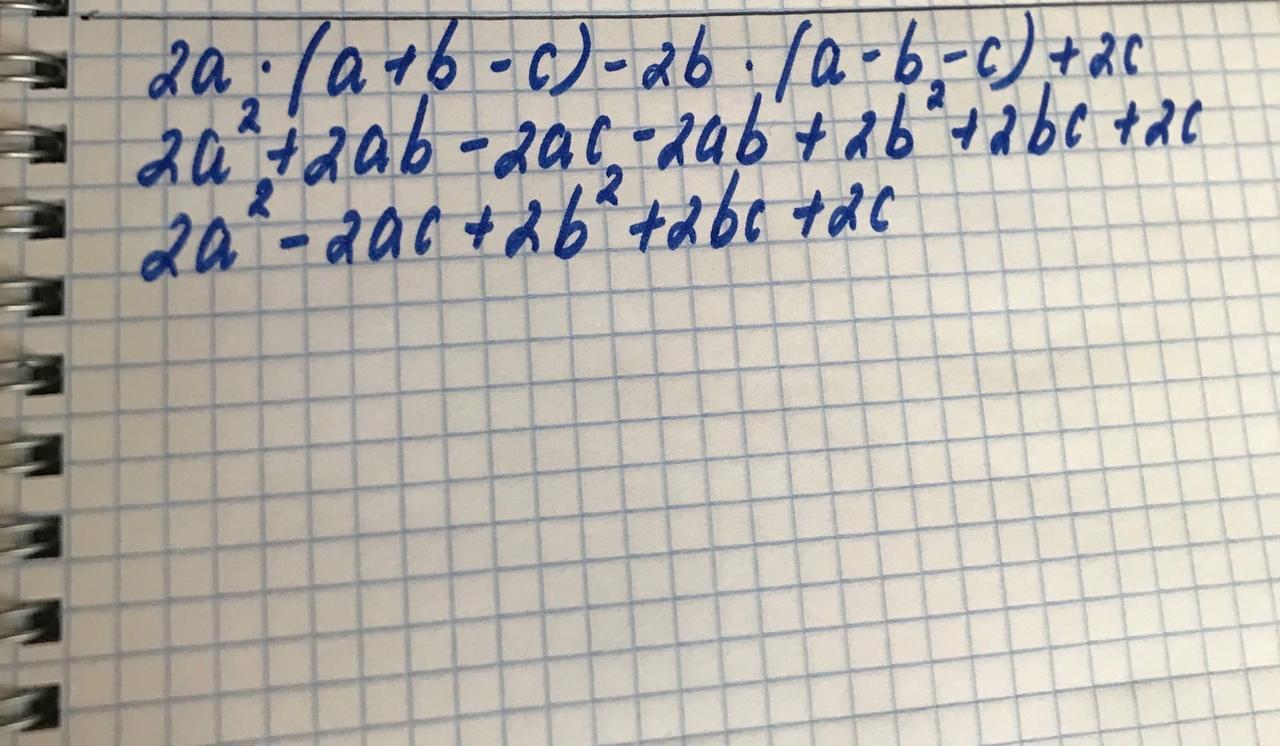 2a · (a + b - c) - 2b · (a - b - c) + 2c
2a² + 2ab - 2ac - 2ab + 2b² + 2bc + 2c
2a² - 2ac + 2b² + 2bc + 2c